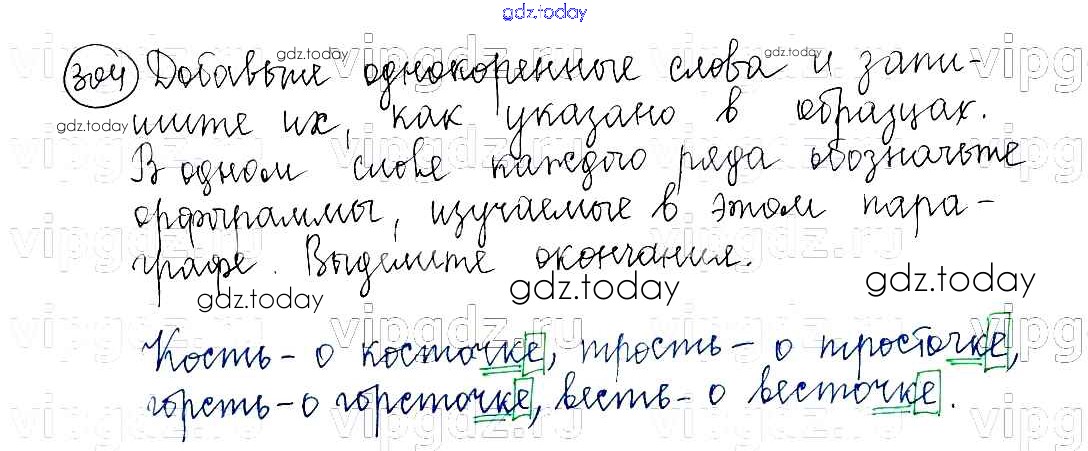 gdz.today
304 Добавьте однокоренные слова и запи-
шите их, как указано в образцах.
В одном слове каждого ряда обозначьте
орфограммы, изучаемые в этом пара-
графе. Выделите окончания.
gdz.today gdz.today gdz.today
Кость - о косточке, трость - о тросточке,
горсть - о горсточке, весть - о весточке.